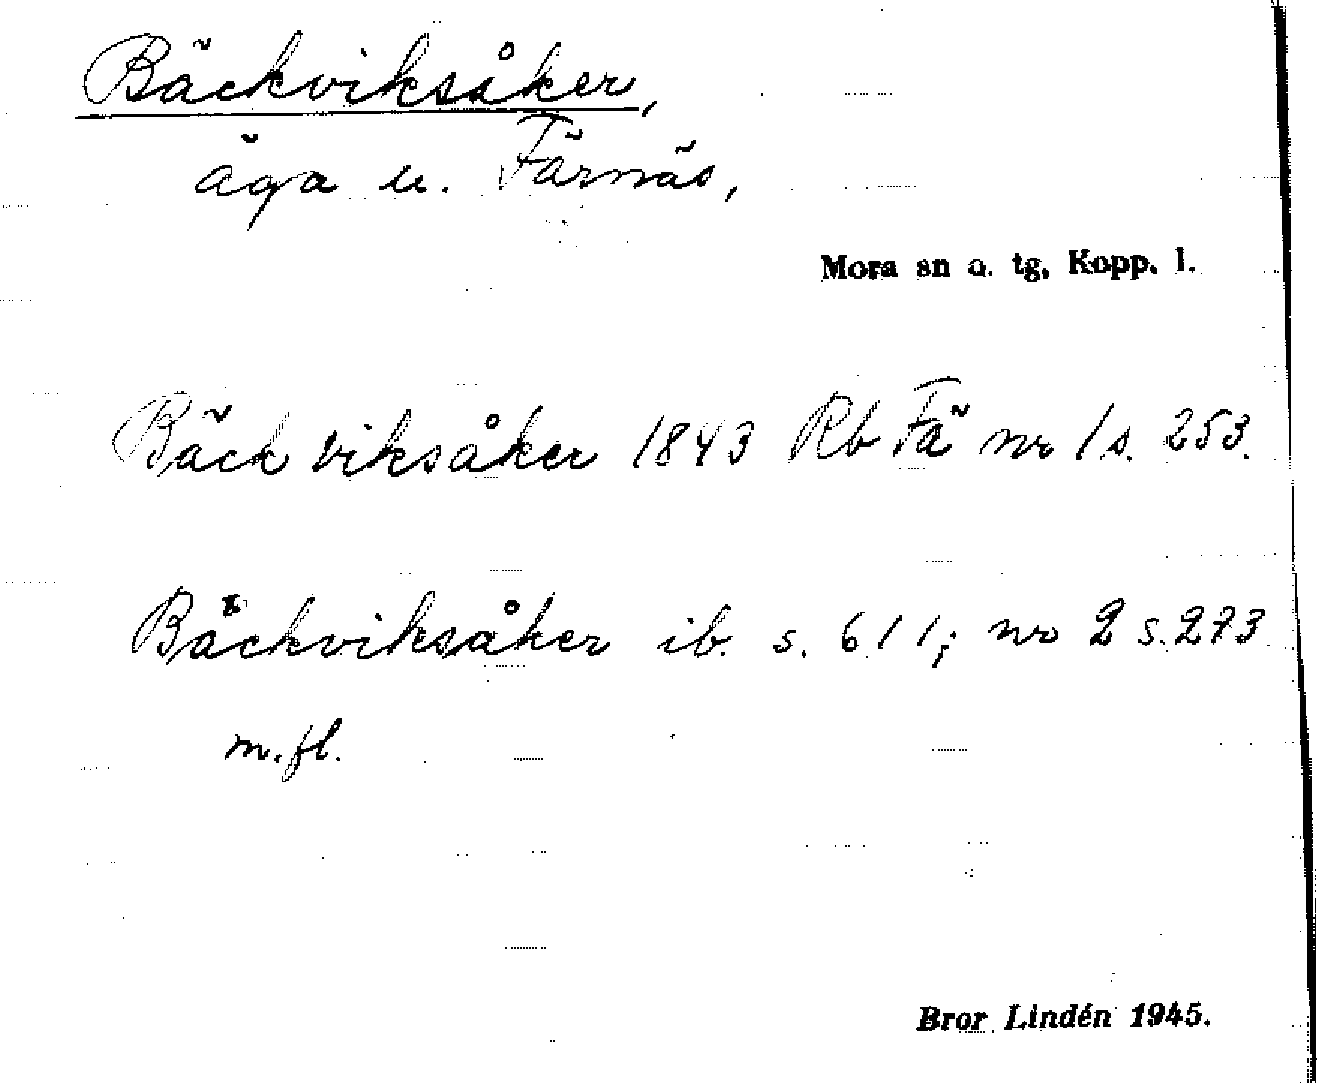 Bäckviksåker,
äga u. Färnäs,
Mora sn o. tg, Kopp. l.
Bäckviksåker 1843 Rb Fä nr 1 s. 253.
Bäckviksåker ib. s. 611; nr 2 s. 273
m.fl.
Bror Lindén 1945.